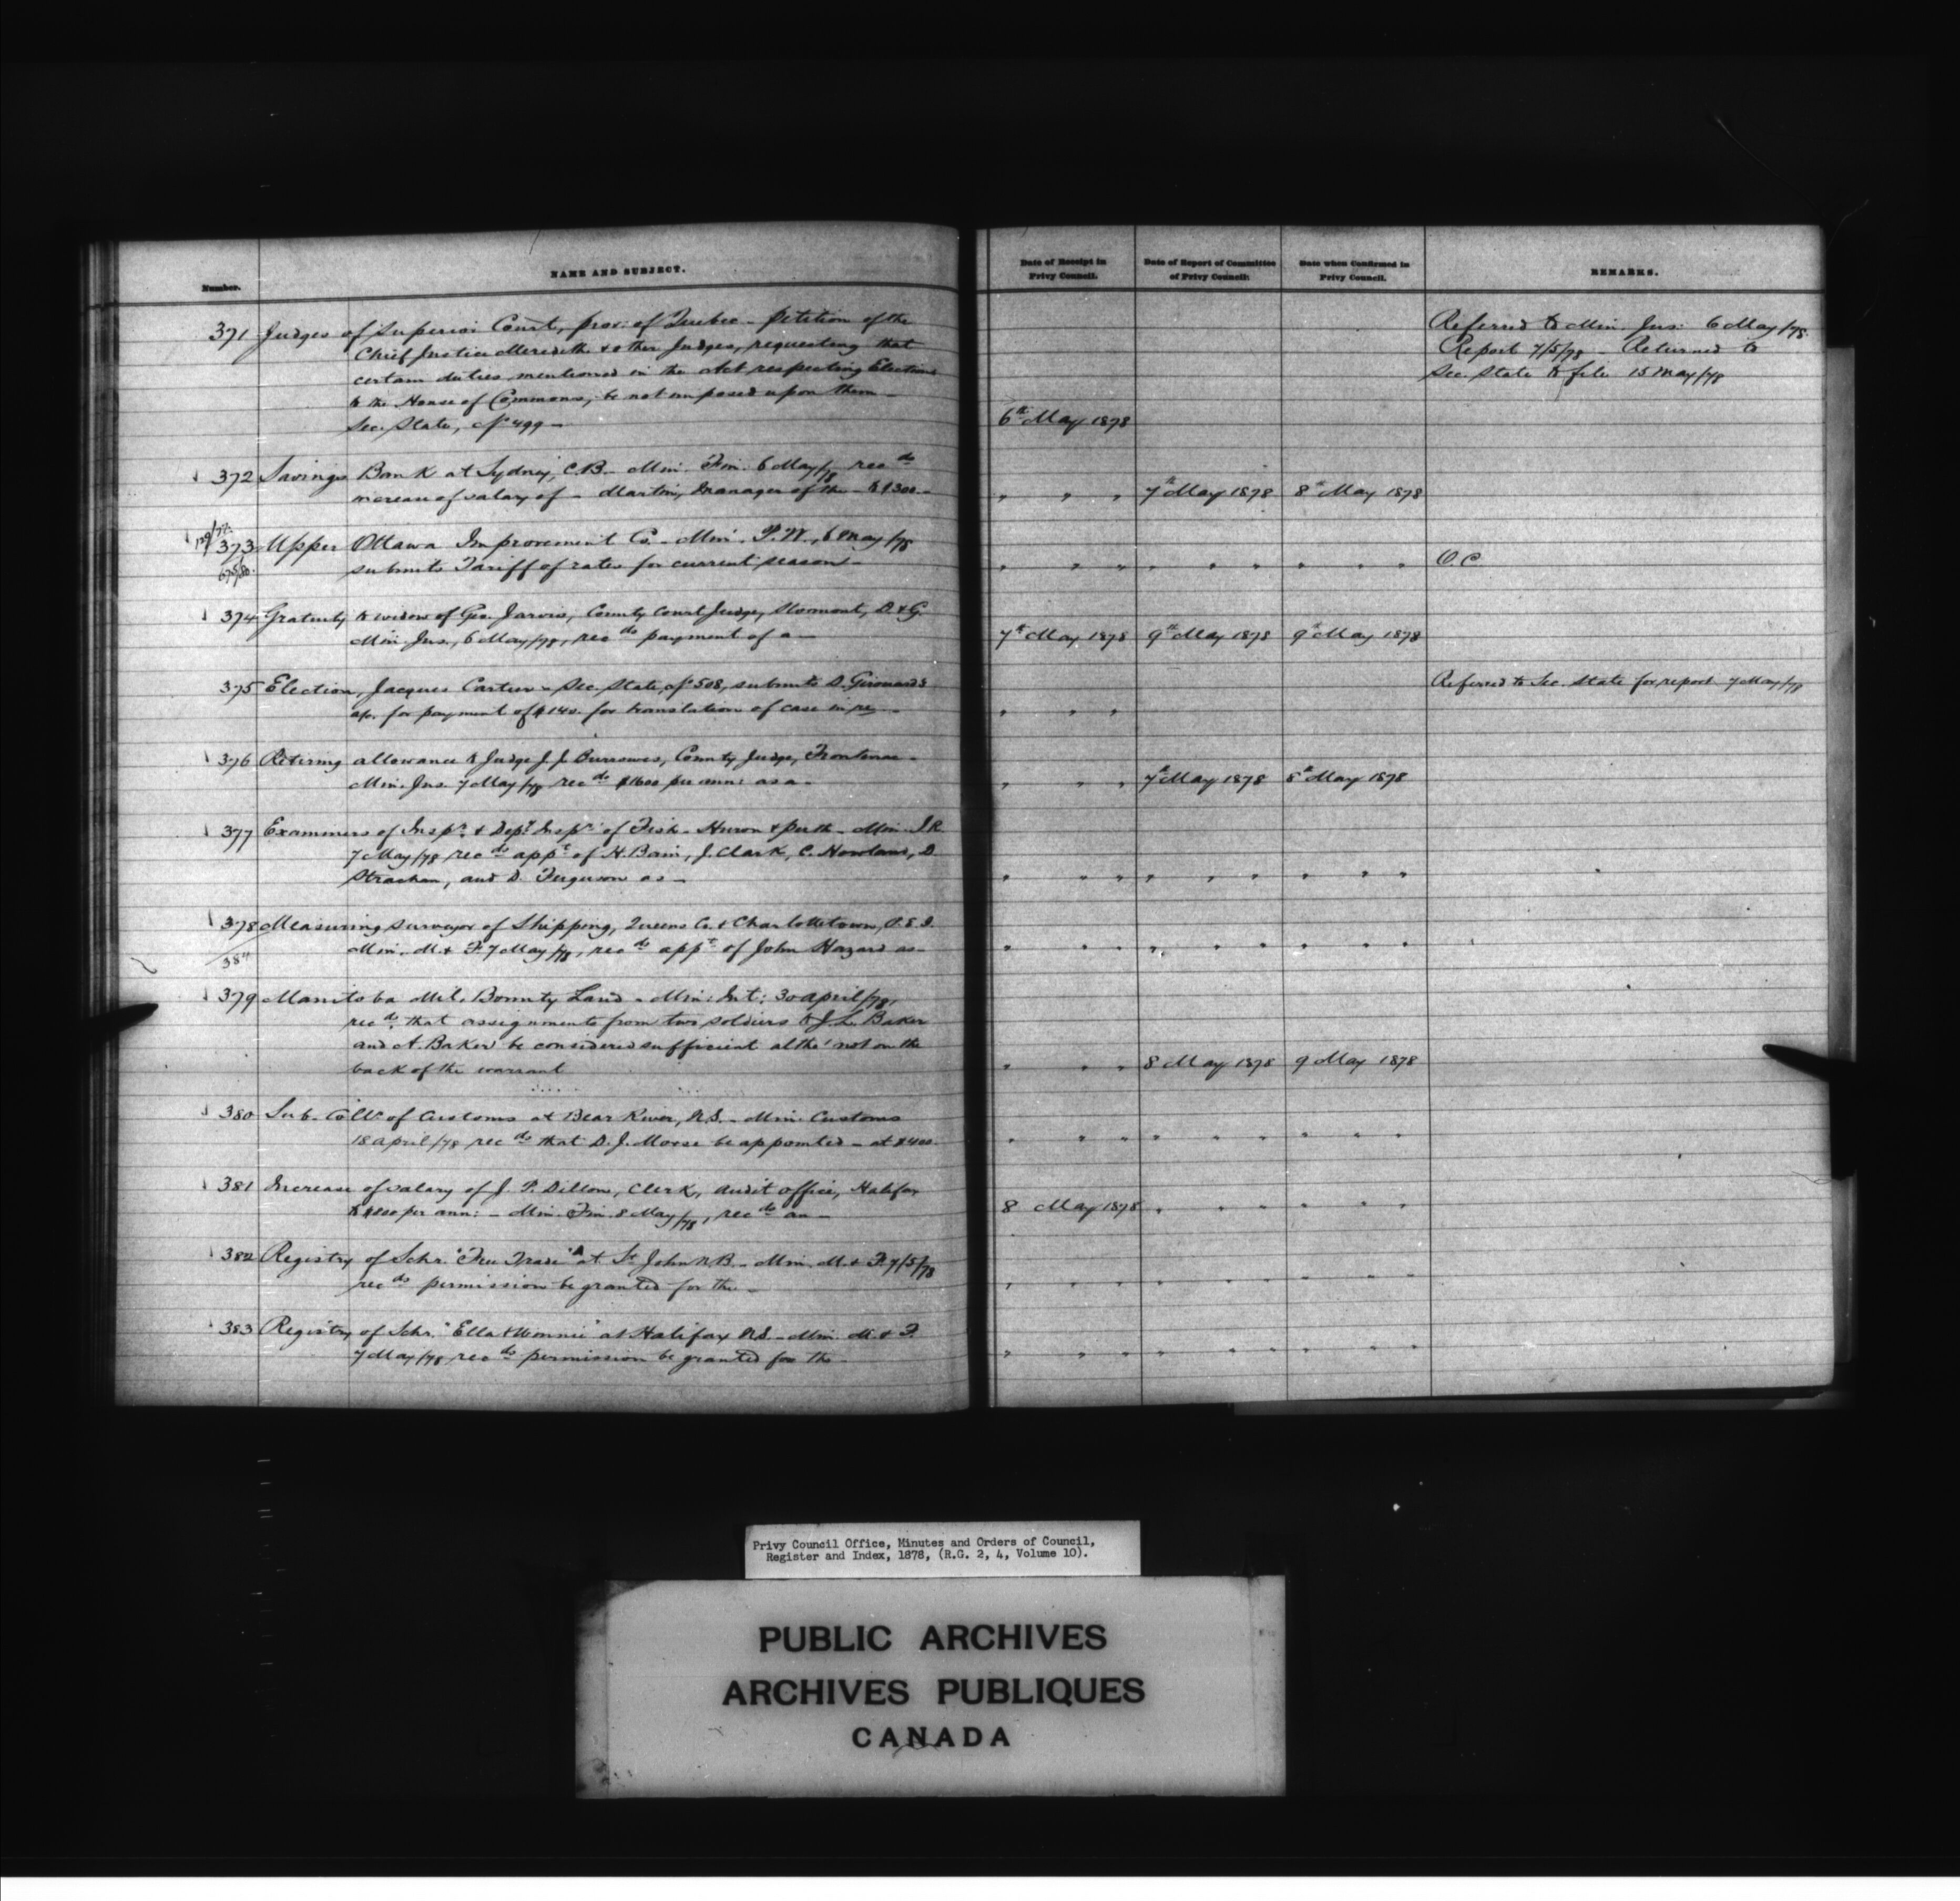 Number.
NAME AND SUBJECT.
Date of Receipt in Privy Council.
Date of Report of Committee of Privy Council.
Date when Confirmed in Privy Council.
REMARKS.
371 Judges of Superior Court, prov: of Quebec - Petition of the
Chief Justice Meredith & other Judges, requesting that
certain duties mentioned in the Act respecting Elections
to the House of Commons, be not imposed upon them -
Sec. State, No 499 -
6th May 1878
Referred to Min. Jus: 6 May/78.
Report 7/5/78 - Returned to
Sec. State to file 15 May/78
372 Savings Bank at Sydney, C.B. - Min. Fin. 6 May/78 recds
increase of salary of - Martin, Manager of the - to $300 -
" " " 7th May 1878 8th May 1878
373 Upper Ottawa Improvement Co. - Min. P.W., 6 May/78
submits Tariff of rates for current season -
" " " " " " " " " O.C
374 Gratuity to widow of Geo. Jarvis, County Court Judge, Stormont, D. & G.
Min. Jus., 6 May/78, recds payment of a -
7th May 1878 9th May 1878 9th May 1878
375 Election, Jacques Cartier - Sec. State, No 508, submits D. Girouard's
ap. for payment of $140. for translation of case in re -
" " "
Referred to Sec. State for report 7 May/78
376 Retiring allowance to Judge J. J. Burrowes, County Judge, Frontenac -
Min. Jus. 7 May/78 recds $1600 per ann: as a -
" " " 7th May 1878 8th May 1878
377 Examiners of Inspr. & Depy. Inspr. of Fish - Huron & Perth - Min. I.R.
7 May/78 recds appt of H. Bain, J. Clark, C. Howland, D.
Strachan, and D. Ferguson as -
" " " " " " " " "
378 Measuring surveyor of Shipping, Queens Co. & Charlottetown, P.E.I.
Min. M. & F. 7 May/78, recds appt of John Hazard as -
" " " " " " " " "
379 Manitoba Mil. Bounty Land - Min: Int: 30 April/78,
recds. that assignments from two soldiers to J. L. Baker
and A. Baker be considered sufficient altho' not on the
back of the warrant
" " " 8 May 1878 9 May 1878
380 Sub-Collr of Customs at Bear River, N.S. - Min. Customs
18 April/78 recds that D. J. Morse be appointed - at $400.
" " " " " " " " "
381 Increase of salary of J. P. Dillon, Clerk, Audit office, Halifax
Min. Fin. 8 May/78, recds an -
8 May 1878 " " " " " "
382 Registry of Schr. "Free Trade" at St John N.B. - Min. M. & F. 7/5/78
recds permission be granted for the -
" " " " " " " " "
383 Registry of Schr. "Ella & Winnie" at Halifax N.S. - Min. M. & F.
7 May/78 recds permission be granted for the -
" " " " " " " " "
Privy Council Office, Minutes and Orders of Council,
Register and Index, 1878, (R.G. 2, 4, Volume 10).
PUBLIC ARCHIVES
ARCHIVES PUBLIQUES
CANADA